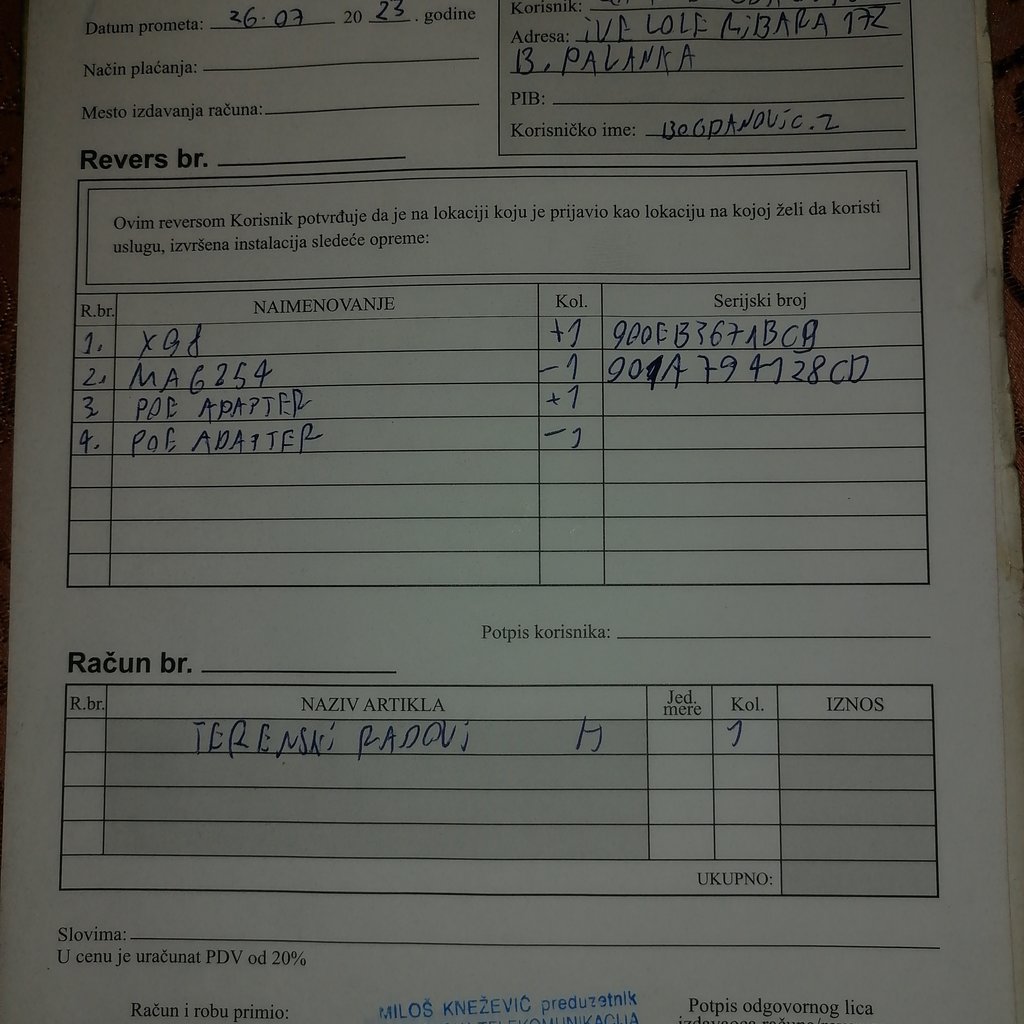 Datum prometa: 26.07 2023. godine
Korisnik:
Adresa: IVE LOLE RIBARA 172
B. PALANKA
Način plaćanja:
PIB:
Mesto izdavanja računa:
Korisničko ime: BOGDANOVIC.Z
Revers br.
Ovim reversom Korisnik potvrđuje da je na lokaciji koju je prijavio kao lokaciju na kojoj želi da koristi
uslugu, izvršena instalacija sledeće opreme:
R.br. NAIMENOVANJE Kol. Serijski broj
1. XG8 +1 900EB3671BCB
2. MAG254 -1 001A794128CD
3 POE ADAPTER +1
4. POE ADAPTER -1
Potpis korisnika:
Račun br.
R.br. NAZIV ARTIKLA Jed. mere Kol. IZNOS
TERENSKI RADOVI H 1
UKUPNO:
Slovima:
U cenu je uračunat PDV od 20%
Račun i robu primio: MILOŠ KNEŽEVIĆ preduzetnik Potpis odgovornog lica
TELEKOMUNIKACIJA izdavaoca